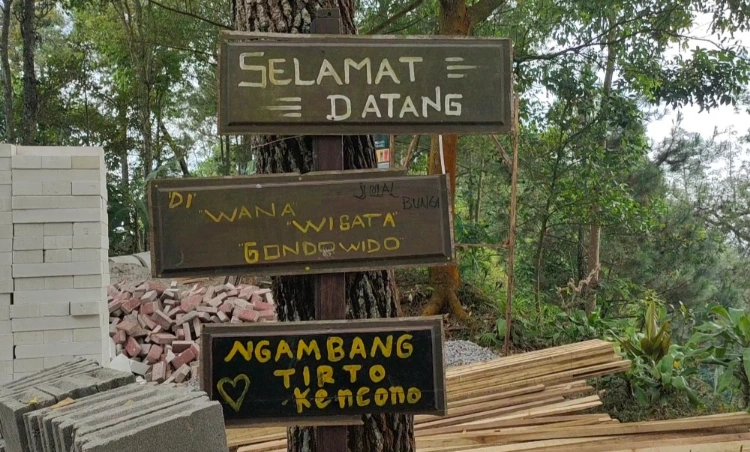 SELAMAT
DATANG
"DI"
"WANA"
"WISATA"
"GONDOWIDO"
BUNGA
NGAMBANG
TIRTO
KENCONO